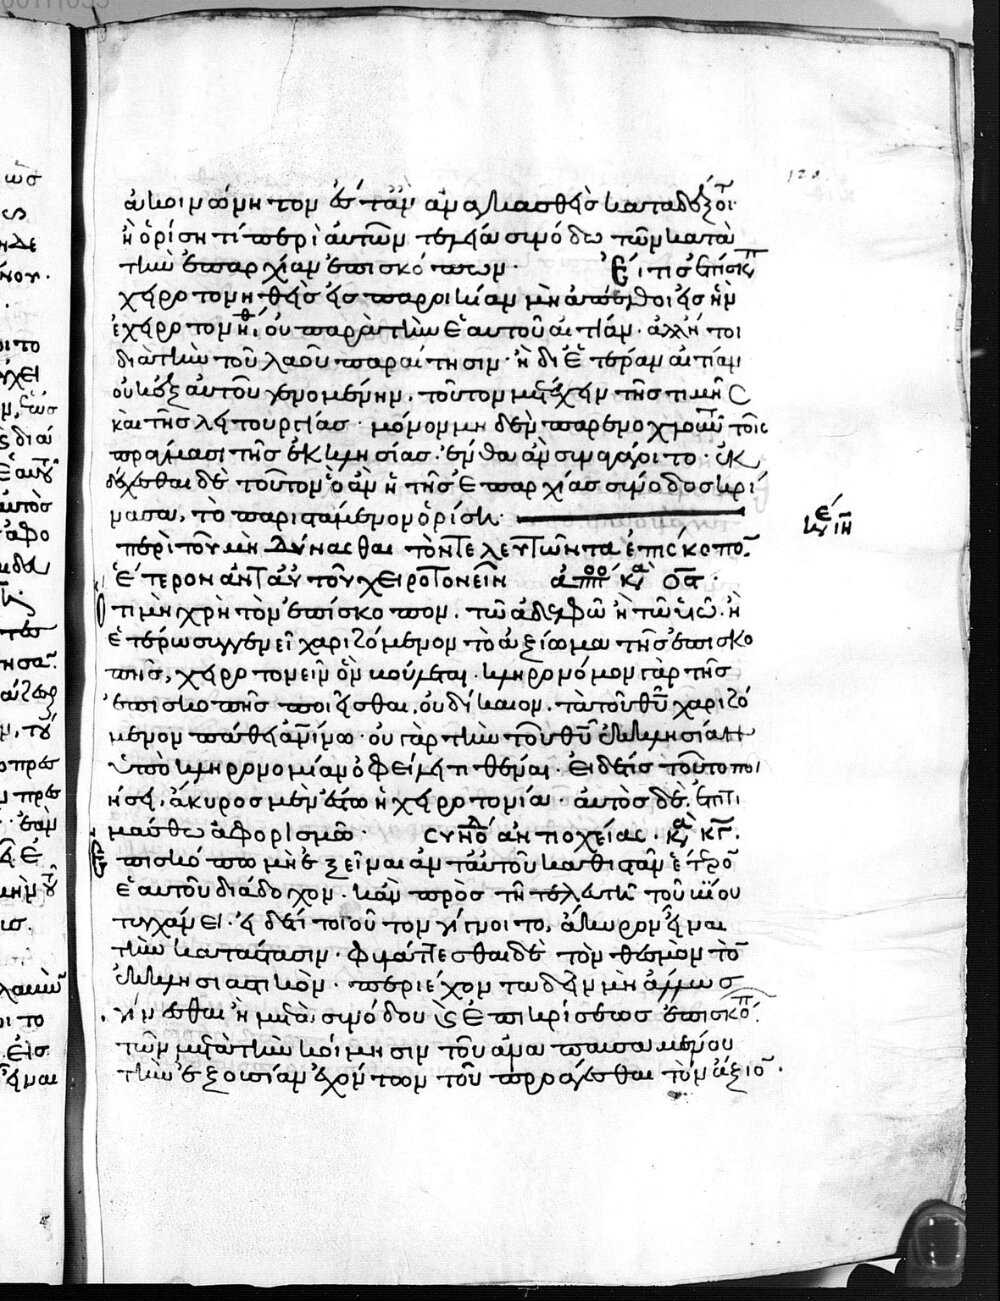 ἀκοινώνητον ἔστ' ἂν ἀναγκασθεὶς καταδέξοιτο
ἢ ὁρίσῃ τί περὶ αὐτῶν τελεία σύνοδος τῶν κατὰ
τὴν ἐπαρχίαν ἐπισκόπων. Εἴ τις ἐπίσκοπ
χειροτονηθεὶς εἰς παροικίαν μὴ ἀπέλθοι εἰς ἣν
ἐχειροτονήθ, οὐ παρὰ τὴν ἑαυτοῦ αἰτίαν. ἀλλ' ἤτοι
διὰ τὴν τοῦ λαοῦ παραίτησιν. ἢ δι' ἑτέραν αἰτίαν
οὐκ ἐξ αὐτοῦ γενομένην. τοῦτον μετέχειν τῆς τιμῆς
καὶ τῆς λειτουργίας. μόνον μηδὲν παρενοχλοῦντ τοῖς
πράγμασι τῆς ἐκκλησίας. ἔνθα ἂν συνάγοιτο. ἐκ
δέχεσθαι δὲ τοῦτον, ὃ ἂν ἡ τῆς ἐπαρχίας σύνοδος κρί
νασα, τὸ παριστάμενον ὁρίσῃ.
ε
κ ιη
περὶ τοῦ μὴ δύνασθαι τὸν τελευτῶντα ἐπίσκοπο
ἕτερον ἀντ' αὐτοῦ χειροτονεῖν ἀπο κ οϛ.
Ὅτι μὴ χρὴ τὸν ἐπίσκοπον. τῶ ἀδελφῶ ἢ τῶ υἱῶ. ἢ
ἑτέρω συγγενεῖ χαριζόμενον τὸ ἀξίωμα τῆς ἐπισκο
πῆς, χειροτονεῖν ὃν βούλεται. κληρονόμον γὰρ τῆς
ἐπισκοπῆς ποιεῖσθαι, οὐ δίκαιον. τὰ τοῦ θῦ χαριζό
μενον πάθει ἀνίνω. οὐ γὰρ τὴν τοῦ θῦ ἐκκλησίαν
ὑπὸ κληρονομίαν ὀφείλει τιθέναι. Εἰ δέ τις τοῦτο ποι
ήσει, ἄκυρος μὲν ἔστω ἡ χειροτονία. αὐτὸς δὲ, ἐπιτι
μάσθω ἀφορισμῶ. συνοδ ἀντιοχείας. κ κγ.
Ἐπισκόπω μὴ ἐξεῖναι ἀντ' αὐτοῦ καθιστᾶν ἕτερο
ἑαυτοῦ διάδοχον. κἂν πρὸς τῇ τελευτῇ τοῦ βίου
τυγχάνει. εἰ δέ τι τοιοῦτον γίγνοιτο, ἄκυρον εἶναι
τὴν κατάστασιν. φυλάττεσθαι δὲ τὸν θεσμὸν τὸ
ἐκκλησιαστικὸν. περιέχοντα δεῖν μὴ ἄλλως
γίνεσθαι ἢ μετὰ συνόδου καὶ ἐπικρίσεως ἐπισκόπ
τῶν μετὰ τὴν κοίμησιν τοῦ ἀναπαυσαμένου
τὴν ἐξουσίαν ἐχόντων τοῦ προάγεσθαι τὸν ἄξιο.